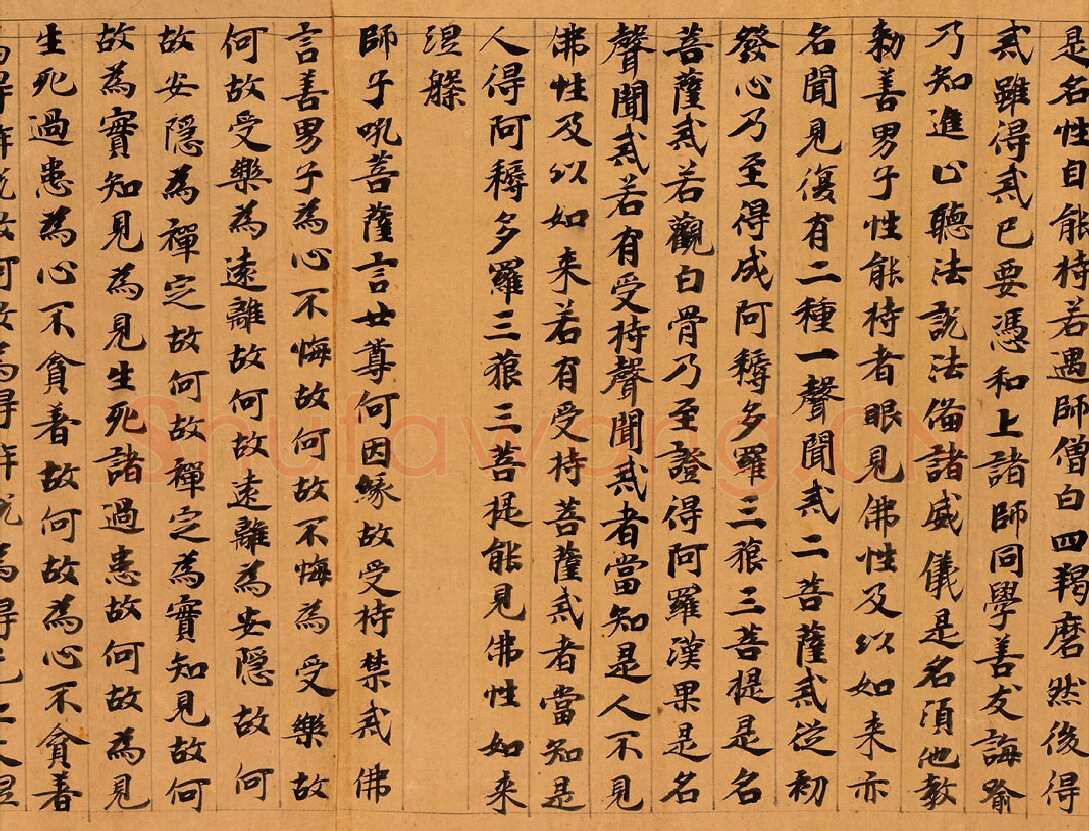 是名性自能持若遇師僧白四羯磨然後得
戒雖得戒已要憑和上諸師同學善友誨喻
乃知進心聽法説法備諸威儀是名須他教
勑善男子性能持者眼見佛性及以如来亦
名聞見復有二種一聲聞戒二菩薩戒從初
發心乃至得成阿耨多羅三藐三菩提是名
菩薩戒若觀白骨乃至證得阿羅漢果是名
聲聞戒若有受持聲聞戒者當知是人不見
佛性及以如来若有受持菩薩戒者當知是
人得阿耨多羅三藐三菩提能見佛性如来
涅槃
師子吼菩薩言世尊何因縁故受持禁戒佛
言善男子為心不悔故何故不悔為受樂故
何故受樂為遠離故何故遠離為安隱故何
故安隱為禪定故何故禪定為實知見故何
故為實知見為見生死諸過患故何故為見
生死過患為心不貪著故何故為心不貪著
為得解脱故何故為得解脱為得无上大涅
Shufawang.CN